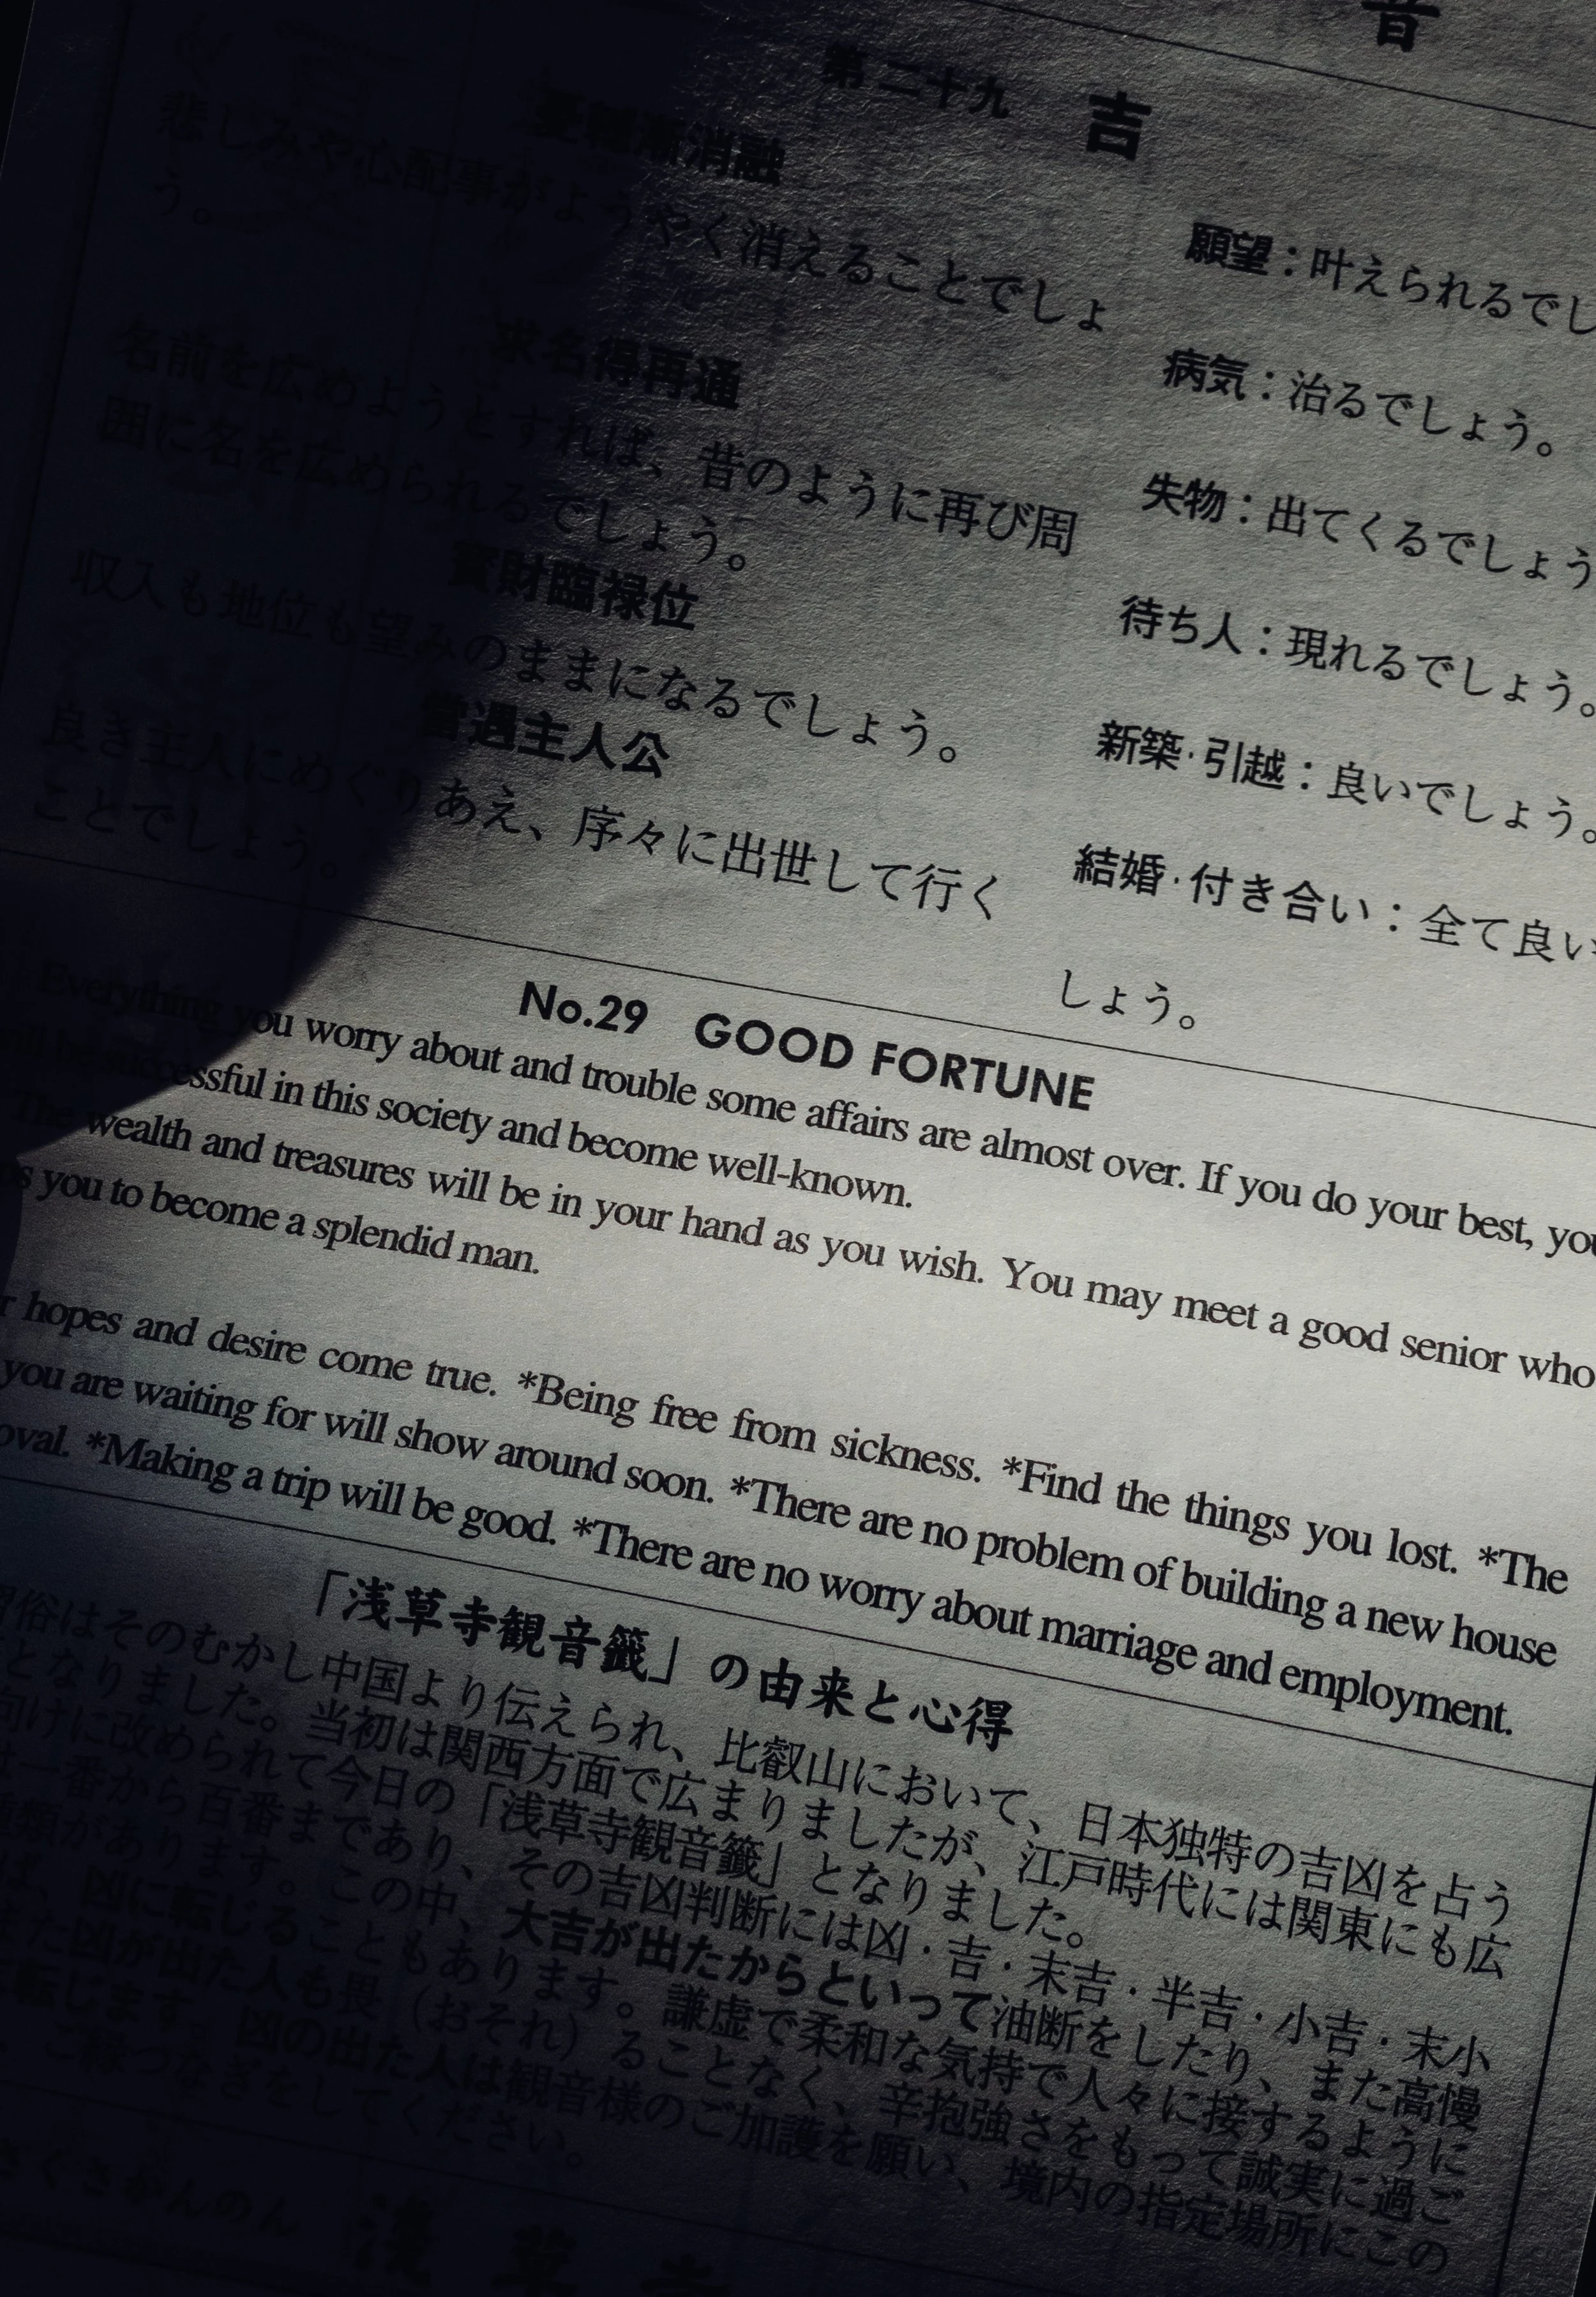 音
第二十九 吉
憂轗漸消融
悲しみや心配事がようやく消えることでしょ
う。
求名得再通
名前を広めようとすれば、昔のように再び周
囲に名を広められるでしょう。
寳財臨禄位
収入も地位も望みのままになるでしょう。
當遇主人公
良き主人にめぐりあえ、序々に出世して行く
ことでしょう。
願望：叶えられるでし
病気：治るでしょう。
失物：出てくるでしょう
待ち人：現れるでしょう。
新築·引越：良いでしょう。
結婚·付き合い：全て良い
しょう。
No.29 GOOD FORTUNE
Everything you worry about and trouble some affairs are almost over. If you do your best, you
will be successful in this society and become well-known.
The wealth and treasures will be in your hand as you wish. You may meet a good senior who
you to become a splendid man.
hopes and desire come true. *Being free from sickness. *Find the things you lost. *The
you are waiting for will show around soon. *There are no problem of building a new house
oval. *Making a trip will be good. *There are no worry about marriage and employment.
「浅草寺観音籤」の由来と心得
習俗はそのむかし中国より伝えられ、比叡山において、日本独特の吉凶を占う
となりました。当初は関西方面で広まりましたが、江戸時代には関東にも広
向けに改められて今日の「浅草寺観音籤」となりました。
一番から百番まであり、その吉凶判断には凶·吉·末吉·半吉·小吉·末小
種類があります。この中、大吉が出たからといって油断をしたり、また高慢
ば、凶に転じることもあります。謙虚で柔和な気持で人々に接するように
また凶が出た人も畏（おそれ）ることなく、辛抱強さをもって誠実に過ご
転じます。凶の出た人は観音様のご加護を願い、境内の指定場所にこの
ご縁つなぎをしてください。
さくさかんのん 浅草寺